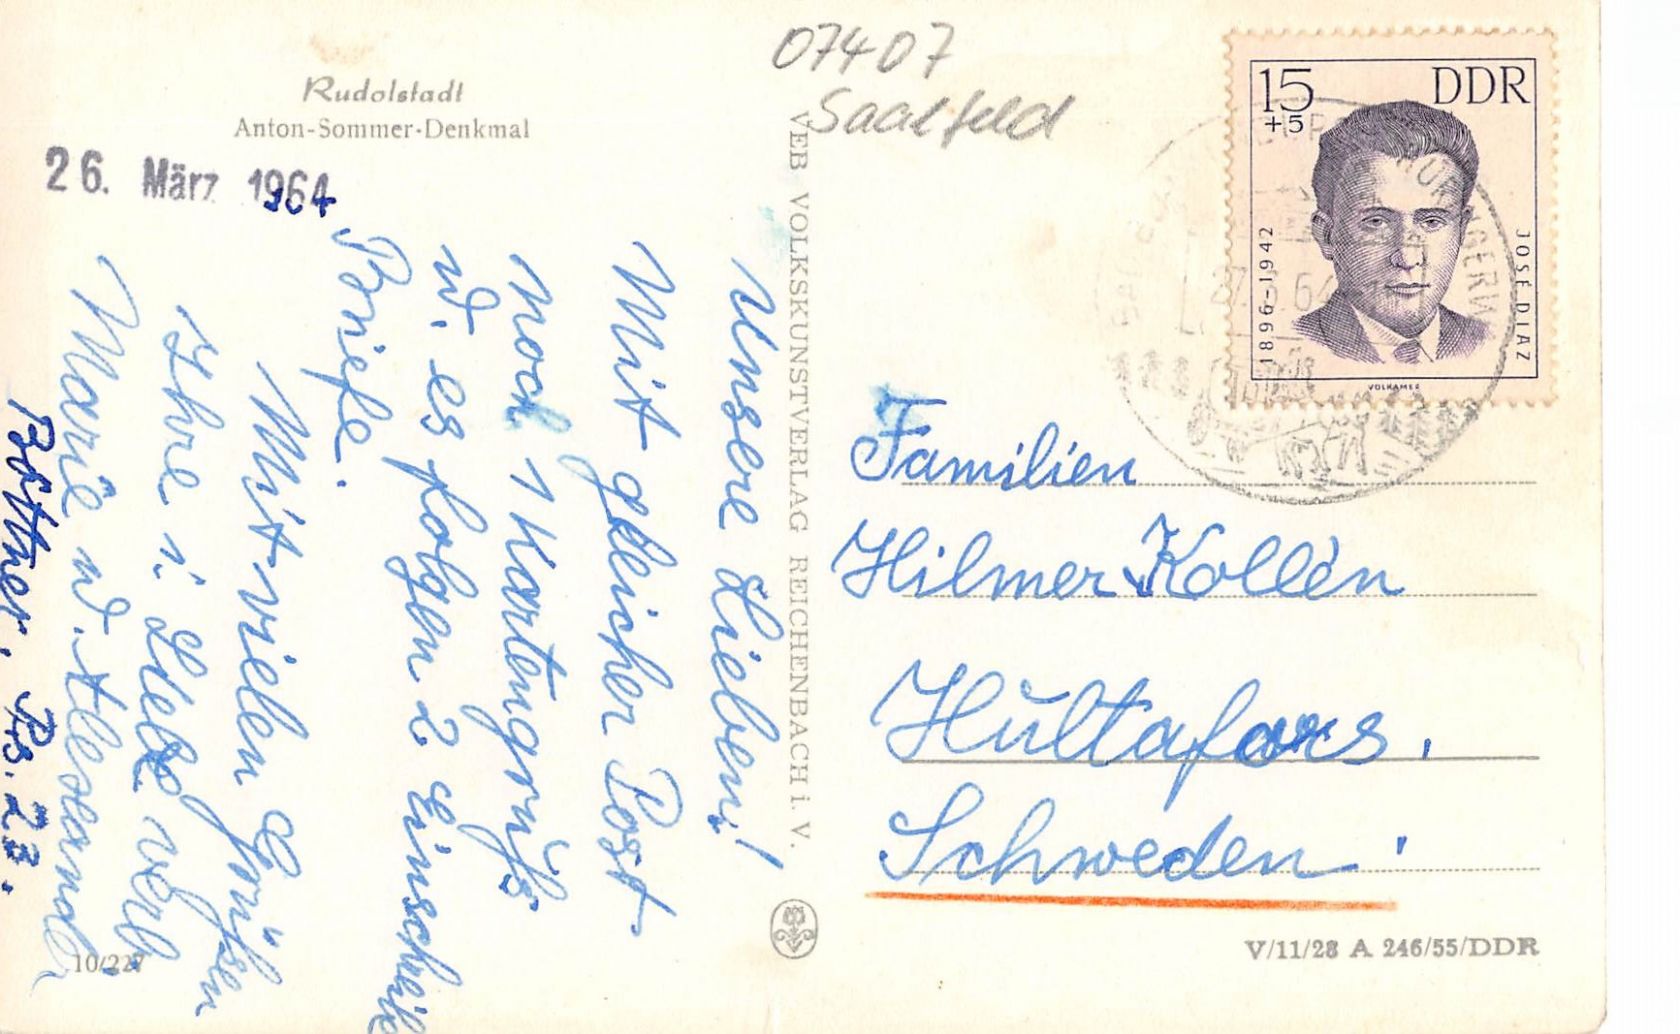 Rudolstadt
Anton-Sommer-Denkmal
26. März 1964
Unsere Lieben!
Mit gleicher Post
noch 1 Kartengruß
u. es folgen 2 Einschreib
Briefe.
Mit vielen Grüßen
Ihre i. Liebe verb.
Marie u. Alexander
Böttner, Rs. 23.
10/227
VEB VOLKSKUNSTVERLAG REICHENBACH i. V.
07407
Saalfeld
15
+5
DDR
1896-1942
JOSÉ DIAZ
VOLKAMER
Familien
Hilmer Kollén
Hultafors.
Schweden.
V/11/28 A 246/55/DDR